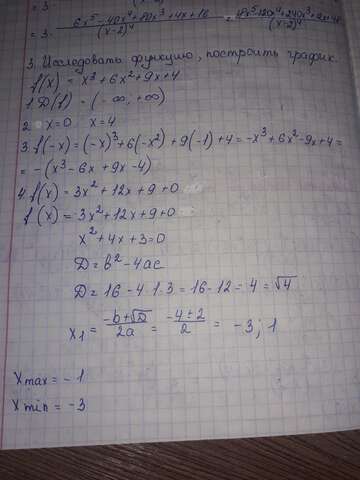 = 3 · (6x⁵ - 40x⁴ + 80x³ + 4x + 16)/(x-2)⁴ =
3. Исследовать функцию, построить график.
f(x) = x³ + 6x² + 9x + 4
1. D(f) = (-∞; +∞)
2. x=0 x=4
3. f(-x) = (-x)³ + 6(-x²) + 9(-1) + 4 = -x³ + 6x² - 9x + 4 =
= -(x³ - 6x + 9x - 4)
4. f(x) = 3x² + 12x + 9 + 0
f(x) = 3x² + 12x + 9 + 0
x² + 4x + 3 = 0
D = b² - 4ac
D = 16 - 4 · 1 · 3 = 16 - 12 = 4 = √4
x₁ = (-b+√D)/2a = (-4±2)/2 = -3; 1
x max = -1
x min = -3